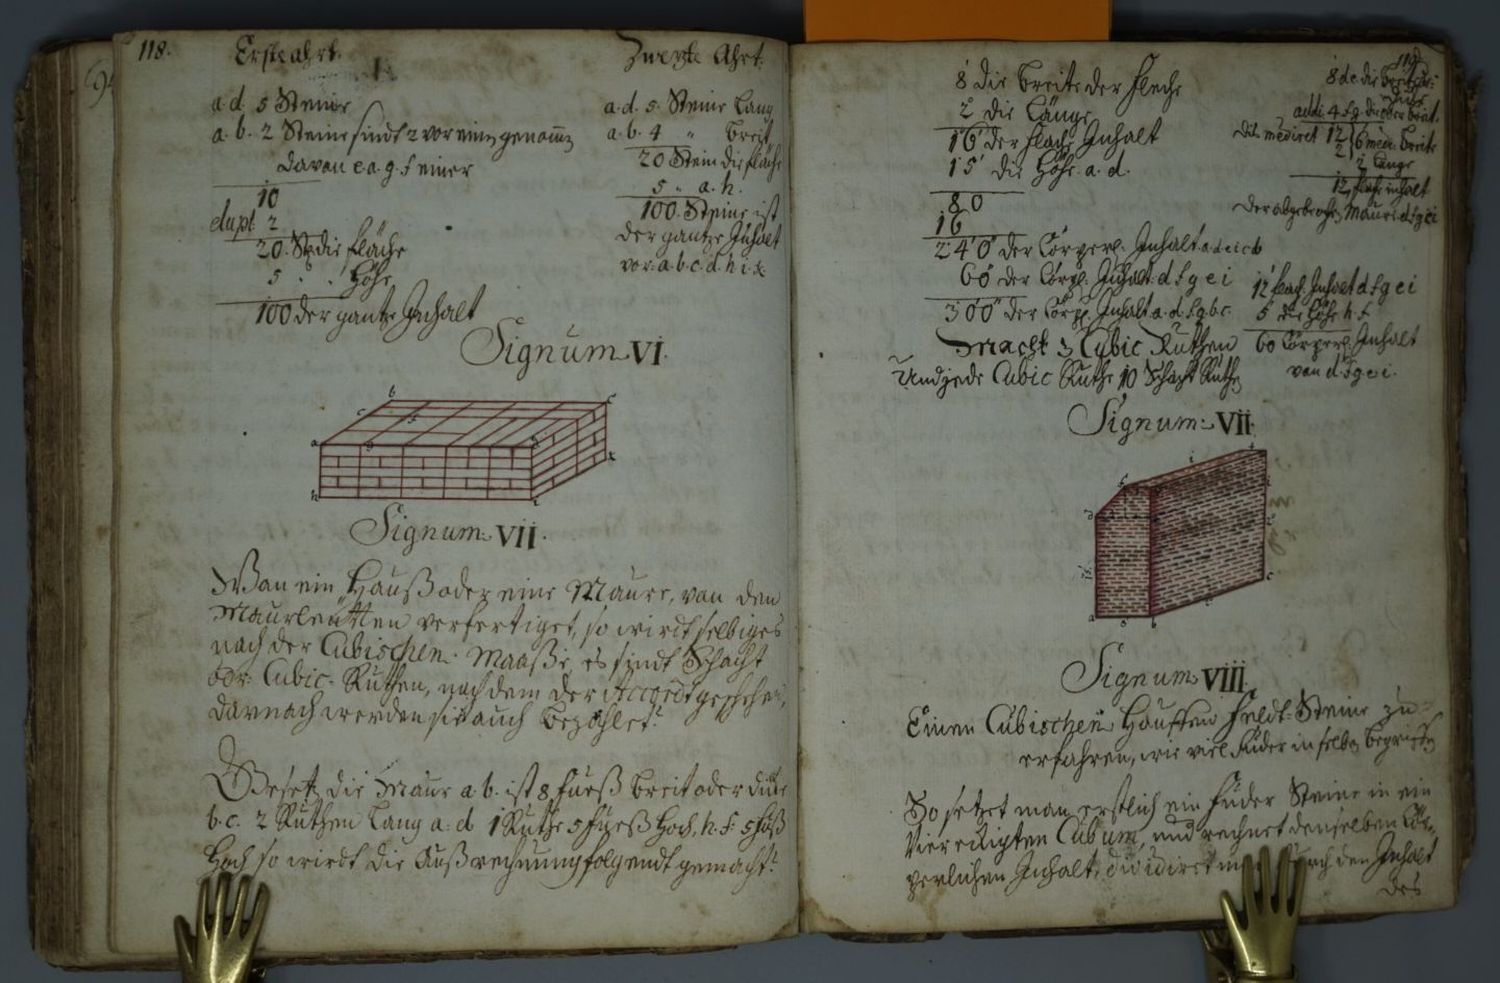 118.
Erste ahrt.
Zweyte Ahrt.
a d. 5 Steine
a. b. 2 Steine sindt 2 vor einen genommen
davon e a. g. f einer
10
dupl. 2
20. St. die fläche
5 . . Höhe
100 der gantze Inhalt
a. d. 5. Steine Lang
a. b. 4 " breit
20 Stein die fläche
5 " a. h.
100. Steine ist
der gantze Inhalt
vor: a. b. c. d. h. i. k.
Signum VI.
b
c
a
g
f
h
i
k
Signum: VII.
Wan ein Hauß oder eine Maure, von den
Maurleütten verfertiget, so wirdt selbiges
nach der Cubischen Maaße, es sindt Schacht
odr: Cubic. Ruthen, nach dem der Accordt geschehen,
darnach werden sie auch bezahlet.
Gesetz die Maur a b. ist 8 fueß breit oder dicke
b. c. 2 Ruthen lang a. d 1 Ruthe 5 fueß hoch, h. f. 5 fuß
Hoch so wirdt die Außrechnung folgendt gemacht.
119.
8 die breite der fleche
2 die Länge
16 der flache Inhalt
15 die Höhe a. d.
80
16
240 der Cörperl. Inhalt a d e i c b
60 der Cörpl. Inhalt d f g e i
300 der Cörpl. Inhalt a. d. f. g b c.
Macht 3 Cubic Ruthen
Und jede Cubic Ruthe 10 Schacht Ruthen
8 d e die
addi. 4 f g. die ober breit.
dis mediret 12 { 6 med. breite
2
2 Länge
12, flache inhalt
der abgebrochen Maure d f g e i
12 flach. Inhalt d f g e i
5 die Höhe h. f
60 Cörperl. Inhalt
von d. f g e i.
Signum: VII.
f
i
d
15.
a
b
c
Signum VIII.
Einen Cubischen Hauffen Feldt-Steine zu
erfahren, wie viel Fuder in selben begriffen
So setzet man erstlich ein Fuder Steine in ein
Viereckigten Cubum, und rechnet denselben Cör-
perlichen Inhalt, dividiret durch den Inhalt
des